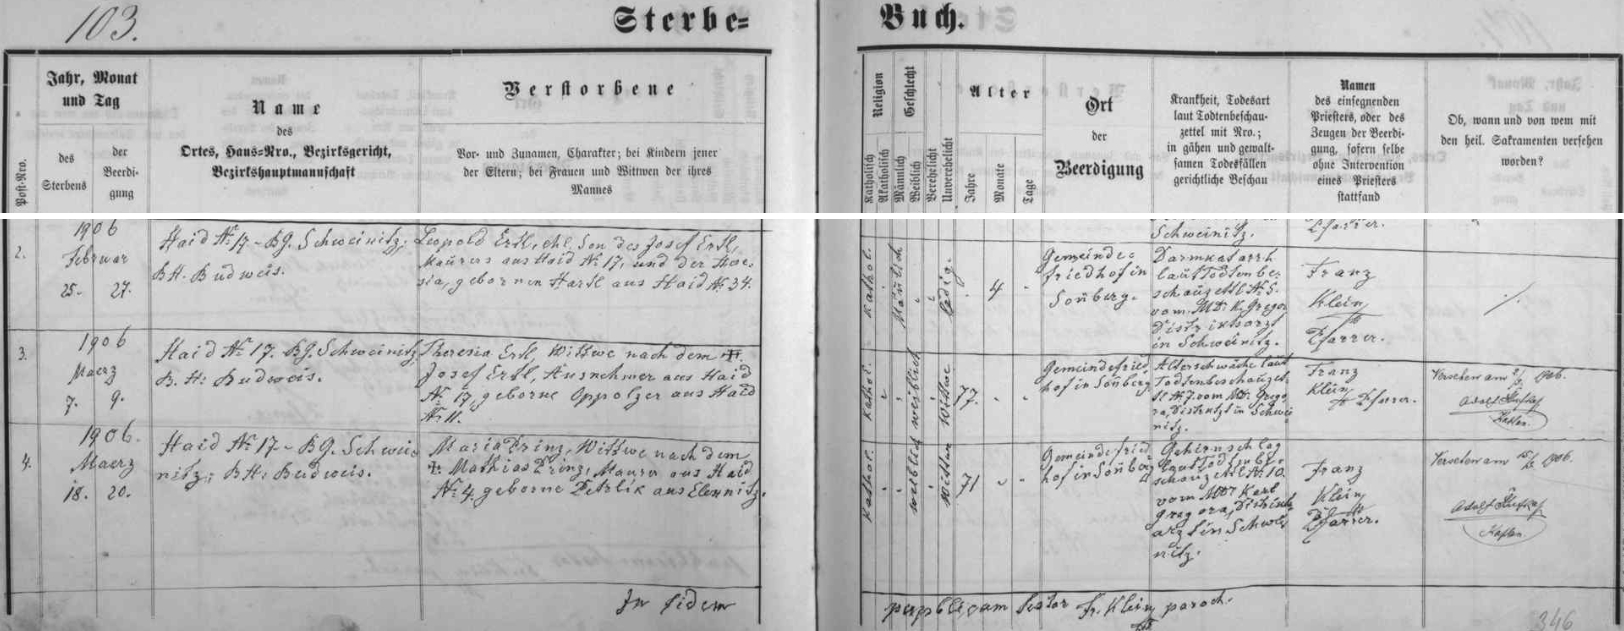 103.
Sterbe=
Buch.
Jahr, Monat
und Tag
des
Sterbens
der
Beerdi-
gung
Post-Nro.
Name
des
Ortes, Haus-Nro., Bezirksgericht,
Bezirkshauptmannschaft
Verstorbene
Vor- und Zunamen, Charakter; bei Kindern jener
der Eltern; bei Frauen und Wittwen der ihres
Mannes
Religion
Katholisch
Akatholisch
Geschlecht
Männlich
Weiblich
Verehelicht
Unverehelicht
Alter
Jahre
Monate
Tage
Ort
der
Beerdigung
Krankheit, Todesart
laut Todtenbeschau-
zettel mit Nro.;
in gähen und gewalt-
samen Todesfällen
gerichtliche Beschau
Namen
des einsegnenden
Priesters, oder des
Zeugen der Beerdi-
gung, sofern selbe
ohne Intervention
eines Priesters
stattfand
Ob, wann und von wem mit
den heil. Sakramenten versehen
worden?
Schweinitz.
Pfarrer.
2.
1906
Februar
25. 27.
Haid No 17 - BG. Schweinitz;
B.H. Budweis.
Leopold Ertl, ehl. Son des Josef Ertl,
Maurers aus Haid No 17, und der There-
sia, gebornen Hartl aus Haid No 34.
Kathol.
Mänlich
ledig.
4
Gemeinde-
friedhof in
Sonberg.
Darmkatarrh
laut Todtenbe-
schauzettl No 5.
vom MDr. K. Gregor
Distriktsarzt
in Schweinitz.
Franz
Klein
Pfarrer.
3.
1906
Maerz
7. 9.
Haid No 17. BG. Schweinitz,
B. H. Budweis.
Theresia Ertl, Wittwe nach dem †.
Josef Ertl, Ausnehmer aus Haid
No 17, geborne Oppolzer aus Haid
No 11.
Kathol.
weiblich
Wittwe
77.
Gemeindefried
hof in Sonberg
Altersschwäche laut
Todtenbeschauzet-
tl No 7. vom MDr. Grego
ra, Distriktsarzt in Schwei
nitz.
Franz
Klein
Pfarrer.
Versehen am 2/3 1906.
Adolf
Kaplan.
4.
1906.
Maerz
18. 20.
Haid No 17 - BG. Schwei-
nitz; B.H. Budweis.
Maria Prinz, Wittwe nach dem
† Mathias Prinz, Maurer aus Haid
No 4, geborne Petrlik aus Elennitz.
Kathol.
weiblich
Wittwe
71
Gemeindefried
hof in Sonberg
Gehirnschlag
laut Todtenbe-
schauzettl No 10.
vom MDr Karl
Gregora, Distrikts
arzt in Schwei
nitz.
Franz
Klein
Pfarrer.
Versehen am 15/3 1906.
Adolf
Kaplan.
In fidem
Fr. Klein paroch.
346